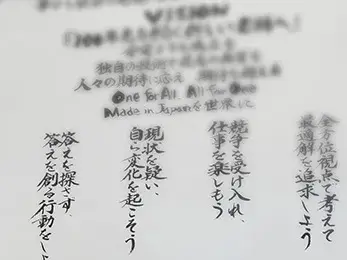 VISION
独自の技術で最高の品質を
人々の期待に応え、期待を超える
One for All, All for One
Made in Japanを世界に
全方位視点で考えて
最適解を追求しよう
競争を受け入れ、
仕事を楽しもう
現状を疑い、
自ら変化を起こそう
答えを探さず、
答えを創る行動をしよ